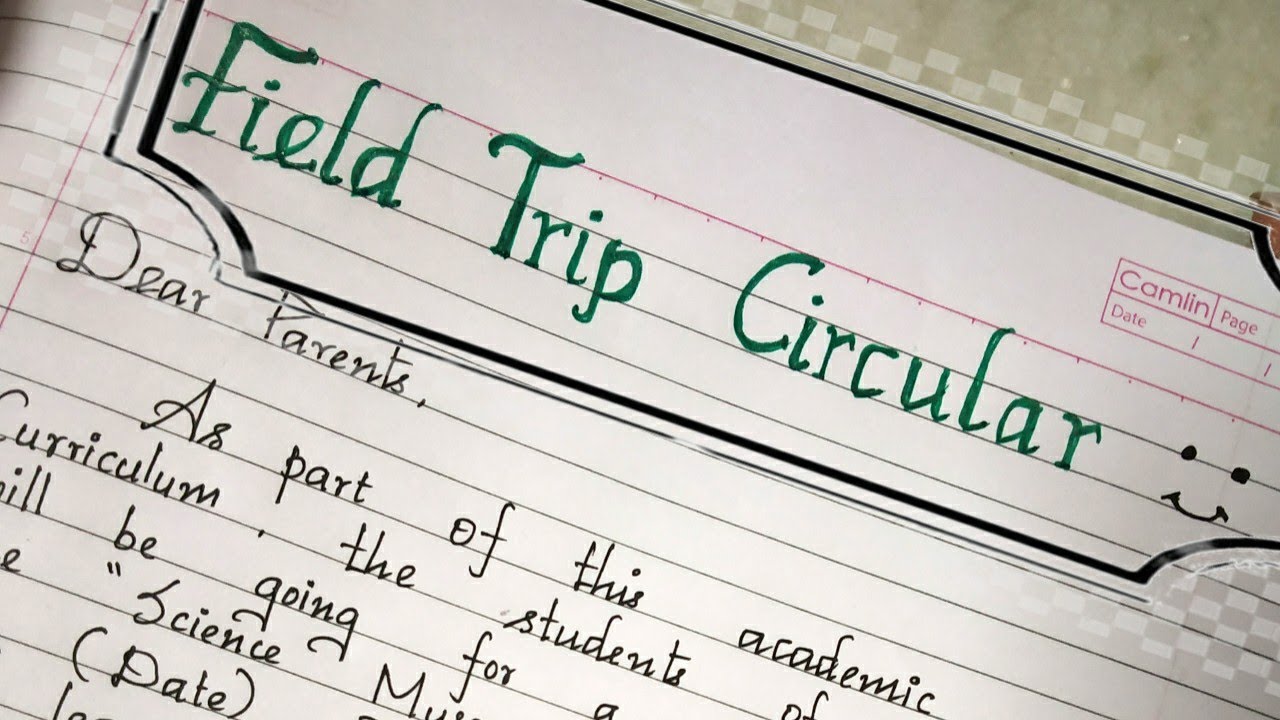 Field Trip Circular
Camlin Page
Date / /
5
Dear Parents,
As part of this academic
Curriculum, the students of
be going for a
"Science
(Date)